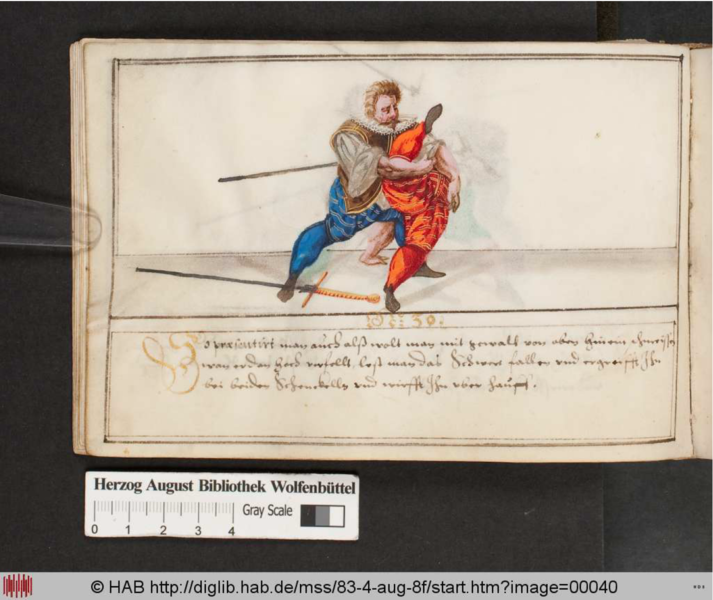 N: 30.
So præsentirt man auch alß wolt man mit gewalt von oben hinein schmeissen
wan er dan hoch verfellt, lest man das Schwert fallen vnd ergreifft Ihn
bei beiden Schenckelln vnd wirfft Ihn vber Haupt.
Herzog August Bibliothek Wolfenbüttel
Gray Scale
0 1 2 3 4
© HAB http://diglib.hab.de/mss/83-4-aug-8f/start.htm?image=00040